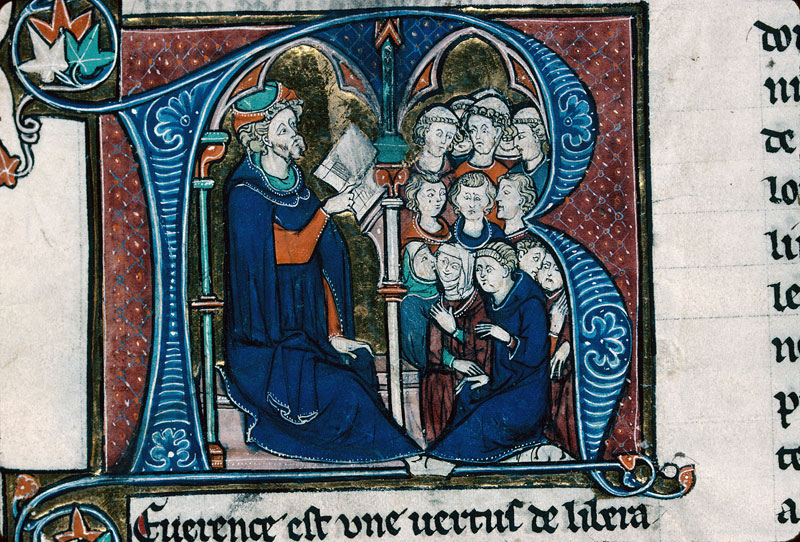 R
Euerence est vne uertus de libera
dor
ni
de
lo
li
le
n
p
te
a